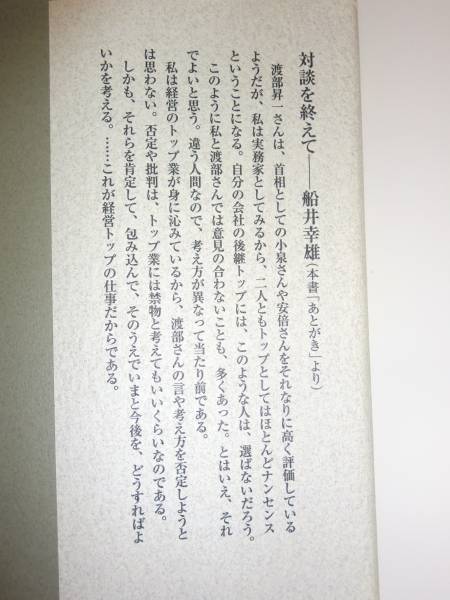 対談を終えて――船井幸雄(本書「あとがき」より)
渡部昇一さんは、首相としての小泉さんや安倍さんをそれなりに高く評価している
ようだが、私は実務家としてみるから、二人ともトップとしてはほとんどナンセンス
ということになる。自分の会社の後継トップには、このような人は、選ばないだろう。
このように私と渡部さんでは意見の合わないことも、多くあった。とはいえ、それ
でよいと思う。違う人間なので、考え方が異なって当たり前である。
私は経営のトップ業が身に沁みているから、渡部さんの言や考え方を否定しようと
は思わない。否定や批判は、トップ業には禁物と考えてもいいくらいなのである。
しかも、それらを肯定して、包み込んで、そのうえでいまと今後を、どうすればよ
いかを考える。……これが経営トップの仕事だからである。